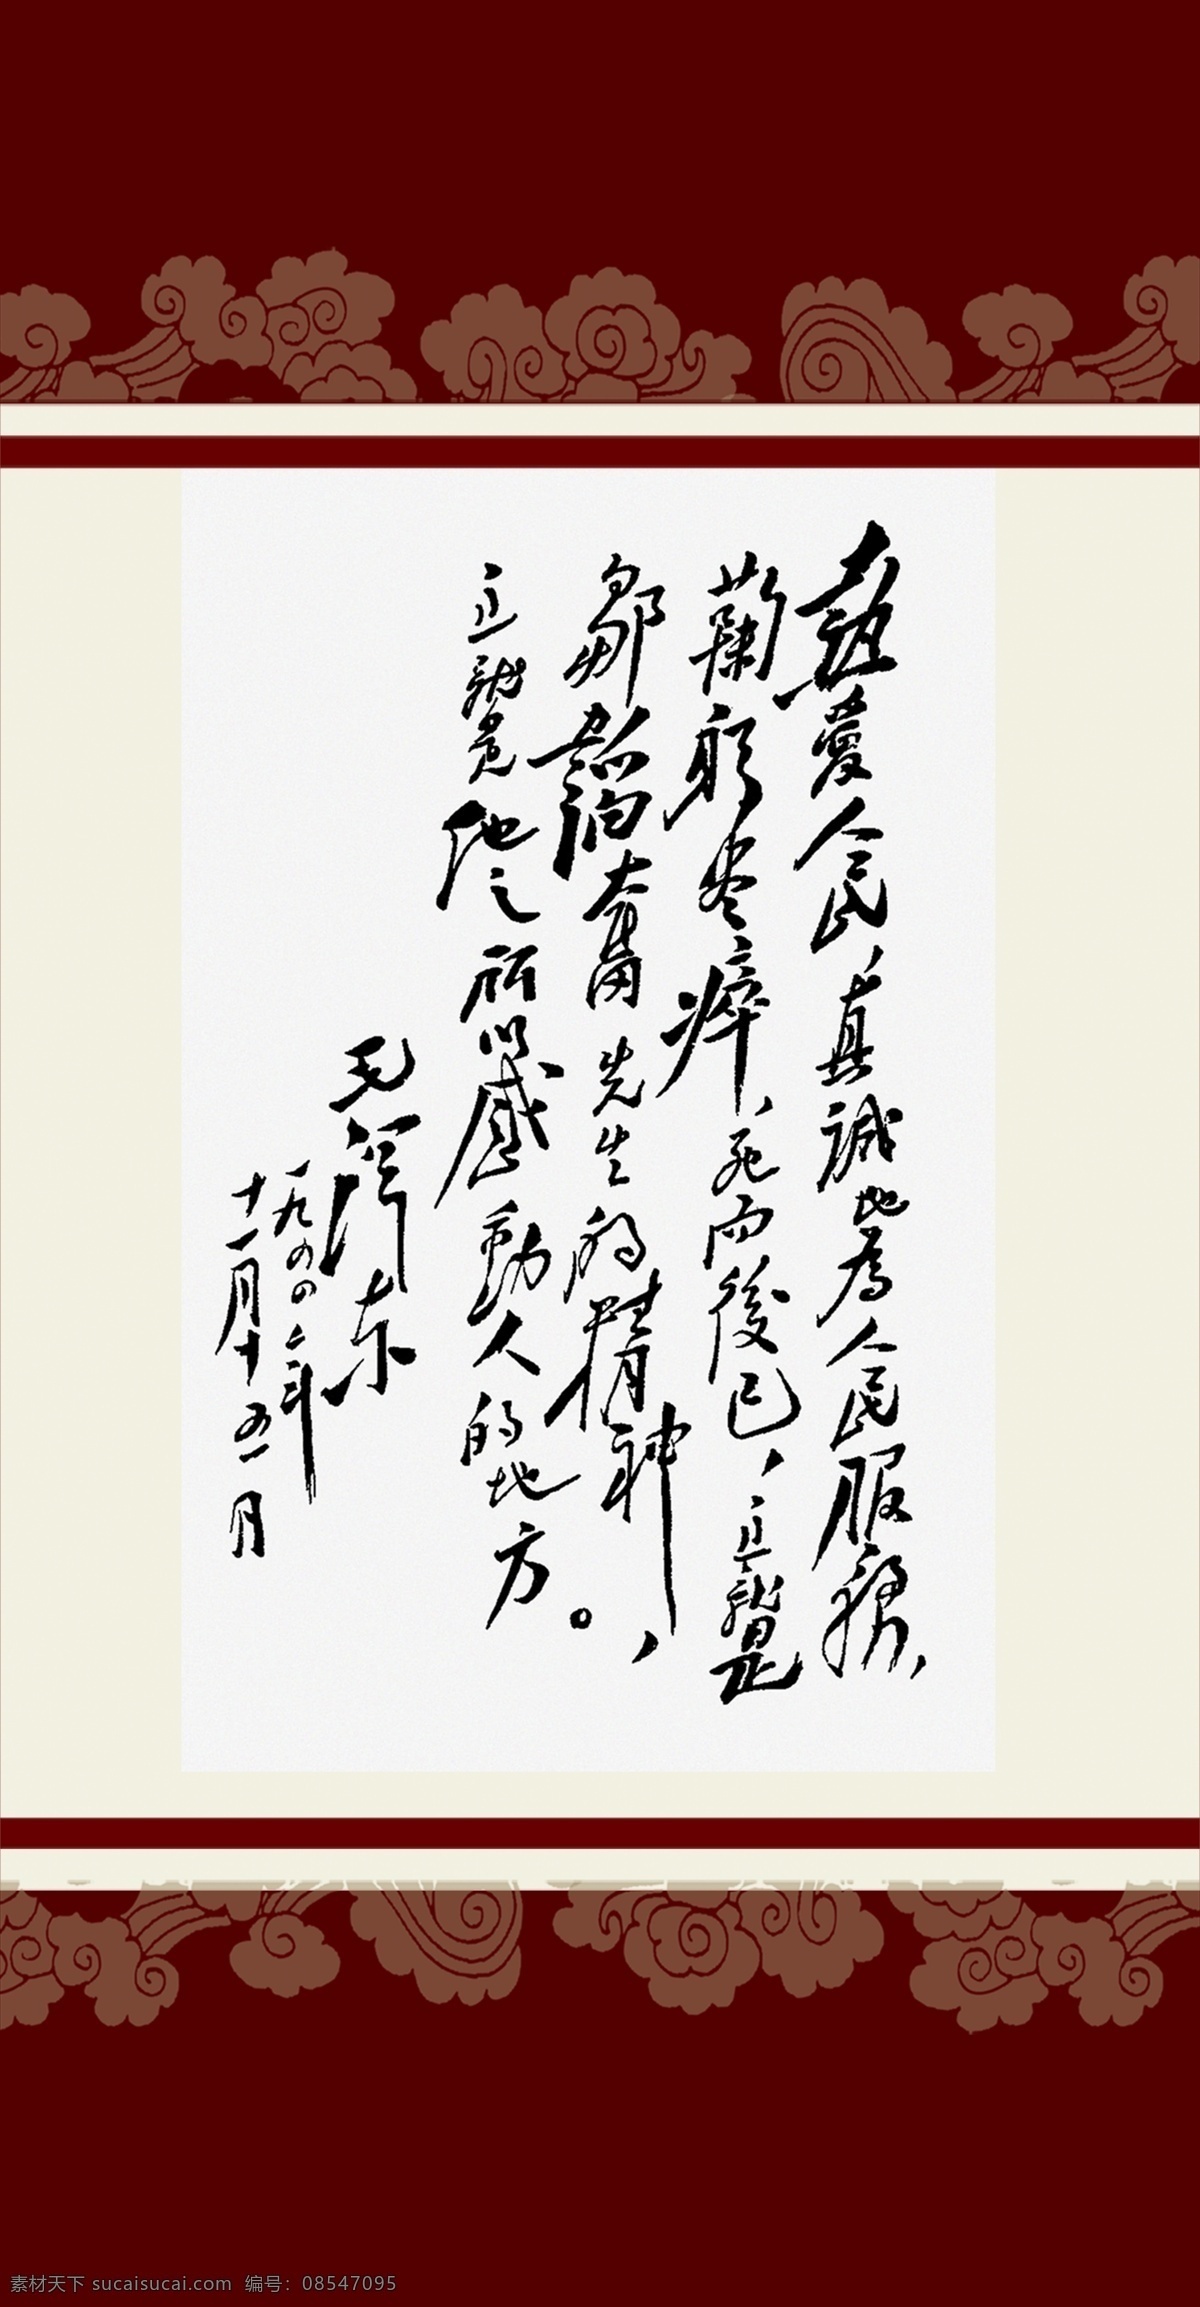 熱愛人民，真誠地為人民服務，
鞠躬尽瘁，死而後已，這就是
鄒韜奮先生的精神，
這就是他之所以感動人的地方。
毛澤东
一九四四年
十一月十五日
素材天下 sucaisucai.com 编号：08547095